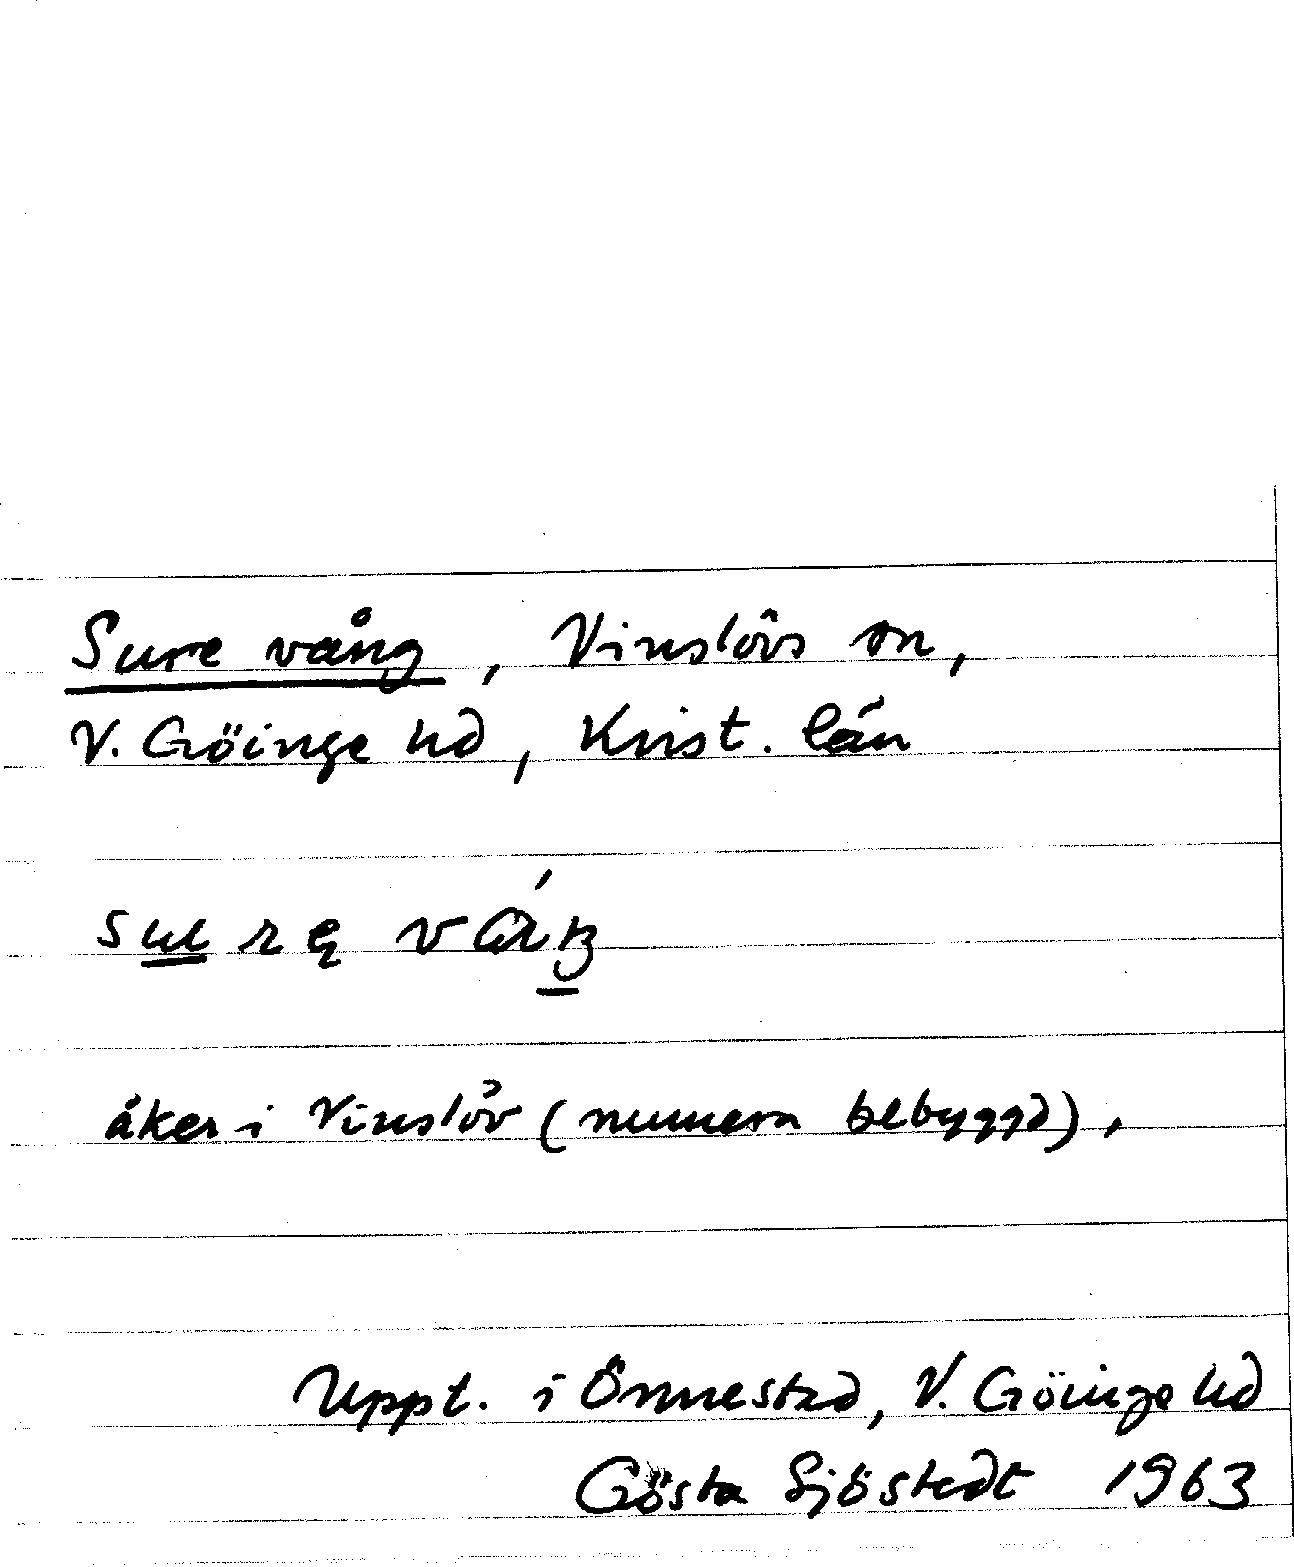 Sure vång, Vinslövs sn,
V. Göinge hd, Krist. län
åker i Vinslöv (numera bebyggd),
Uppt. i Önnestad, V. Göinge hd
Gösta Sjöstedt 1963